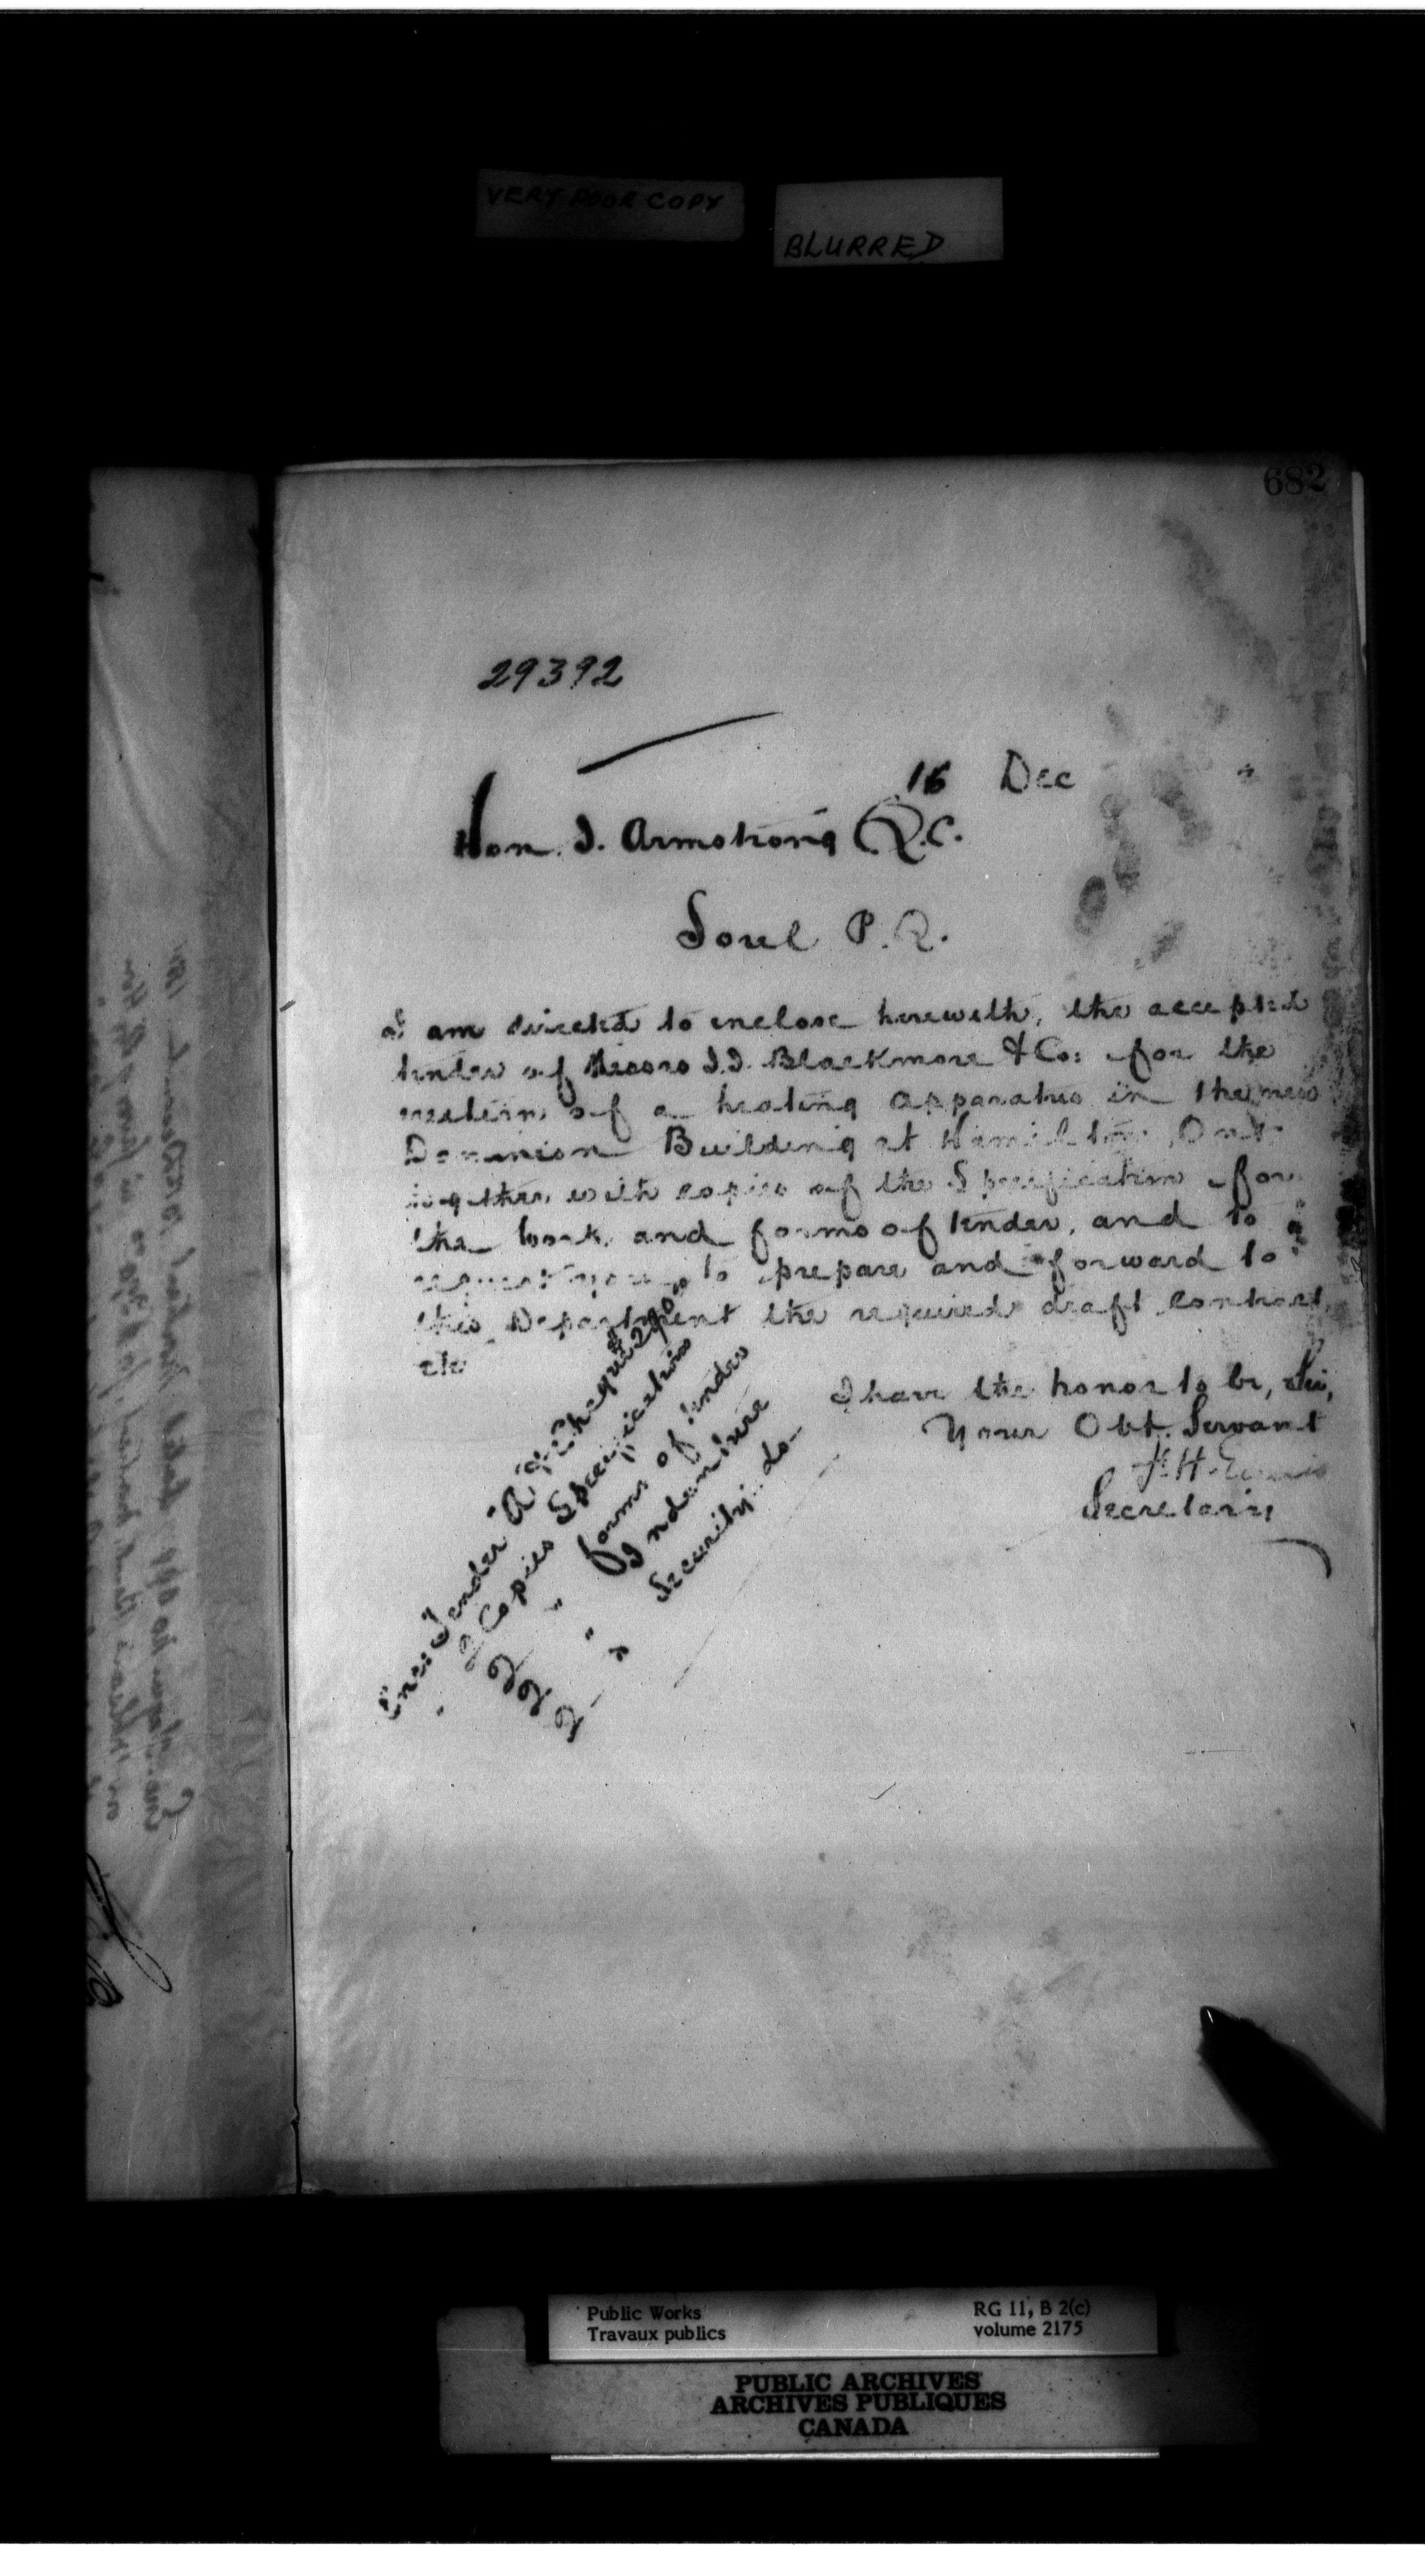 VERY POOR COPY
BLURRED
682
29392
16 Dec
Hon. J. Armstrong Q.C.
Sorel P.Q.
I am directed to enclose herewith, the accepted
tender of Messrs J.J. Blackmore & Co: for the
erection of a heating apparatus in the new
Dominion Building at Hamilton, Ont.
together with copies of the Specification for
the work, and forms of tender, and to
request you to prepare and forward to
this Department the required draft contract,
etc
I have the honor to be, Sir,
Your Obt. Servant
F. H. Ennis
Secretary
Enc: Tender "A"
" 2 Copies Specification
2 " forms of tender
2 " Indenture
2 " Security do-
Public Works
Travaux publics
RG 11, B 2(c)
volume 2175
PUBLIC ARCHIVES
ARCHIVES PUBLIQUES
CANADA